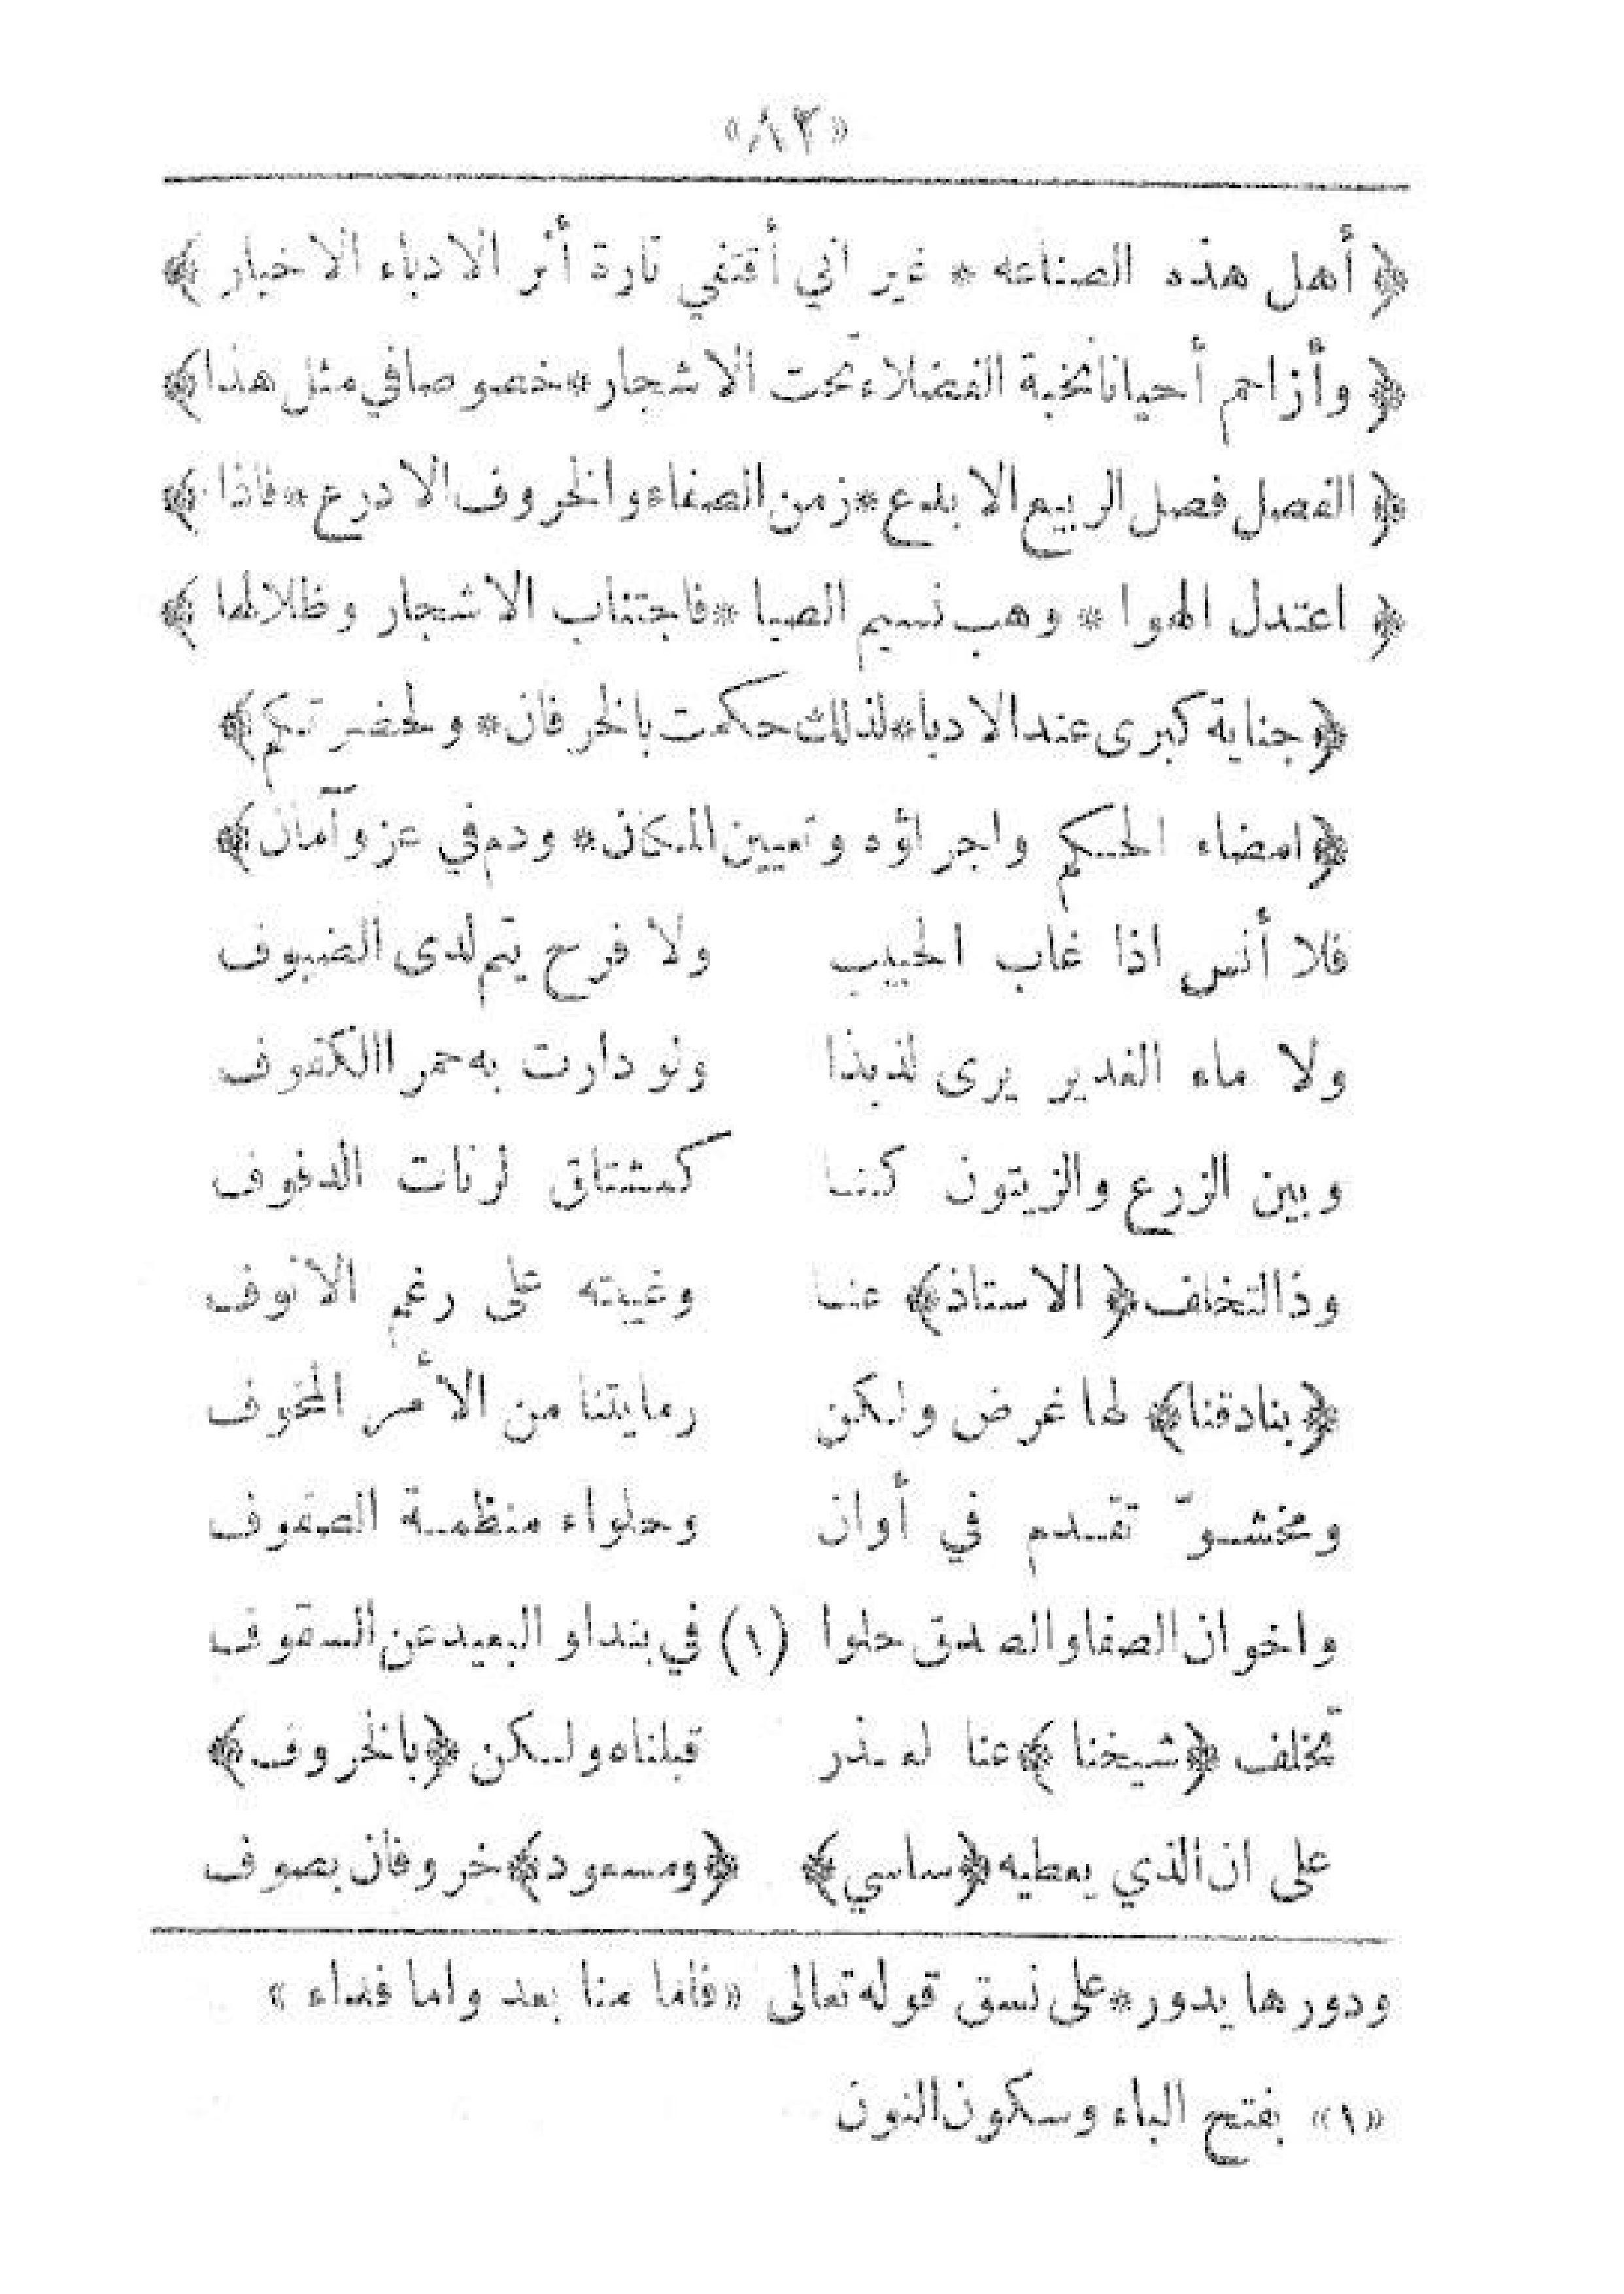 «٨٣»
﴿ أهل هذه الصناعه * غير اني أقتفي تارة أثر الادباء الاخيار ﴾
﴿ وأزاحم أحيانا نخبة الفضلاء تحت الاشجار * خصوصا في مثل هذا ﴾
﴿ الفصل فصل الربيع الابدع * زمن الصفاء والخروف الادرع * فاذا ﴾
﴿ اعتدل الهوا * وهب نسيم الصبا * فاجتناب الاشجار وظلالها ﴾
﴿ جناية كبرى عند الادبا * لذلك حكمت بالخرفان * ولحضرتكم ﴾
﴿ امضاء الحكم واجراؤه وتعيين المكان * ودم في عز وآمان ﴾
فلا أنس اذا غاب الحبيب ولا فرح يتم لدى الضيوف
ولا ماء الغدير يرى لذيذا ولو دارت به حمر الكفوف
وبين الزرع والزيتون كنا كمشتاق لرنات الدفوف
وذا لتخلف ﴿ الاستاذ ﴾ عنا وغيبته على رغم الانوف
﴿ بنادقنا ﴾ لها غرض ولكن رمايتنا من الأمر المخوف
ومخشوّ تقدم في أوان وحلواء منظمة الصفوف
واخوان الصفا والصدق حلوا (١) في بنداو البعيد عن السقوف
تخلف ﴿ شيخنا ﴾ عنا له عذر قبلناه ولكن ﴿ بالخروف ﴾
على ان الذي يعطيه ﴿ ساسي ﴾ ﴿ ومسعود ﴾ خروفان بصوف
ودورها يدور * على نسق قوله تعالى «فاما منا بعد واما فداء»
«١» بفتح الباء وسكون النون